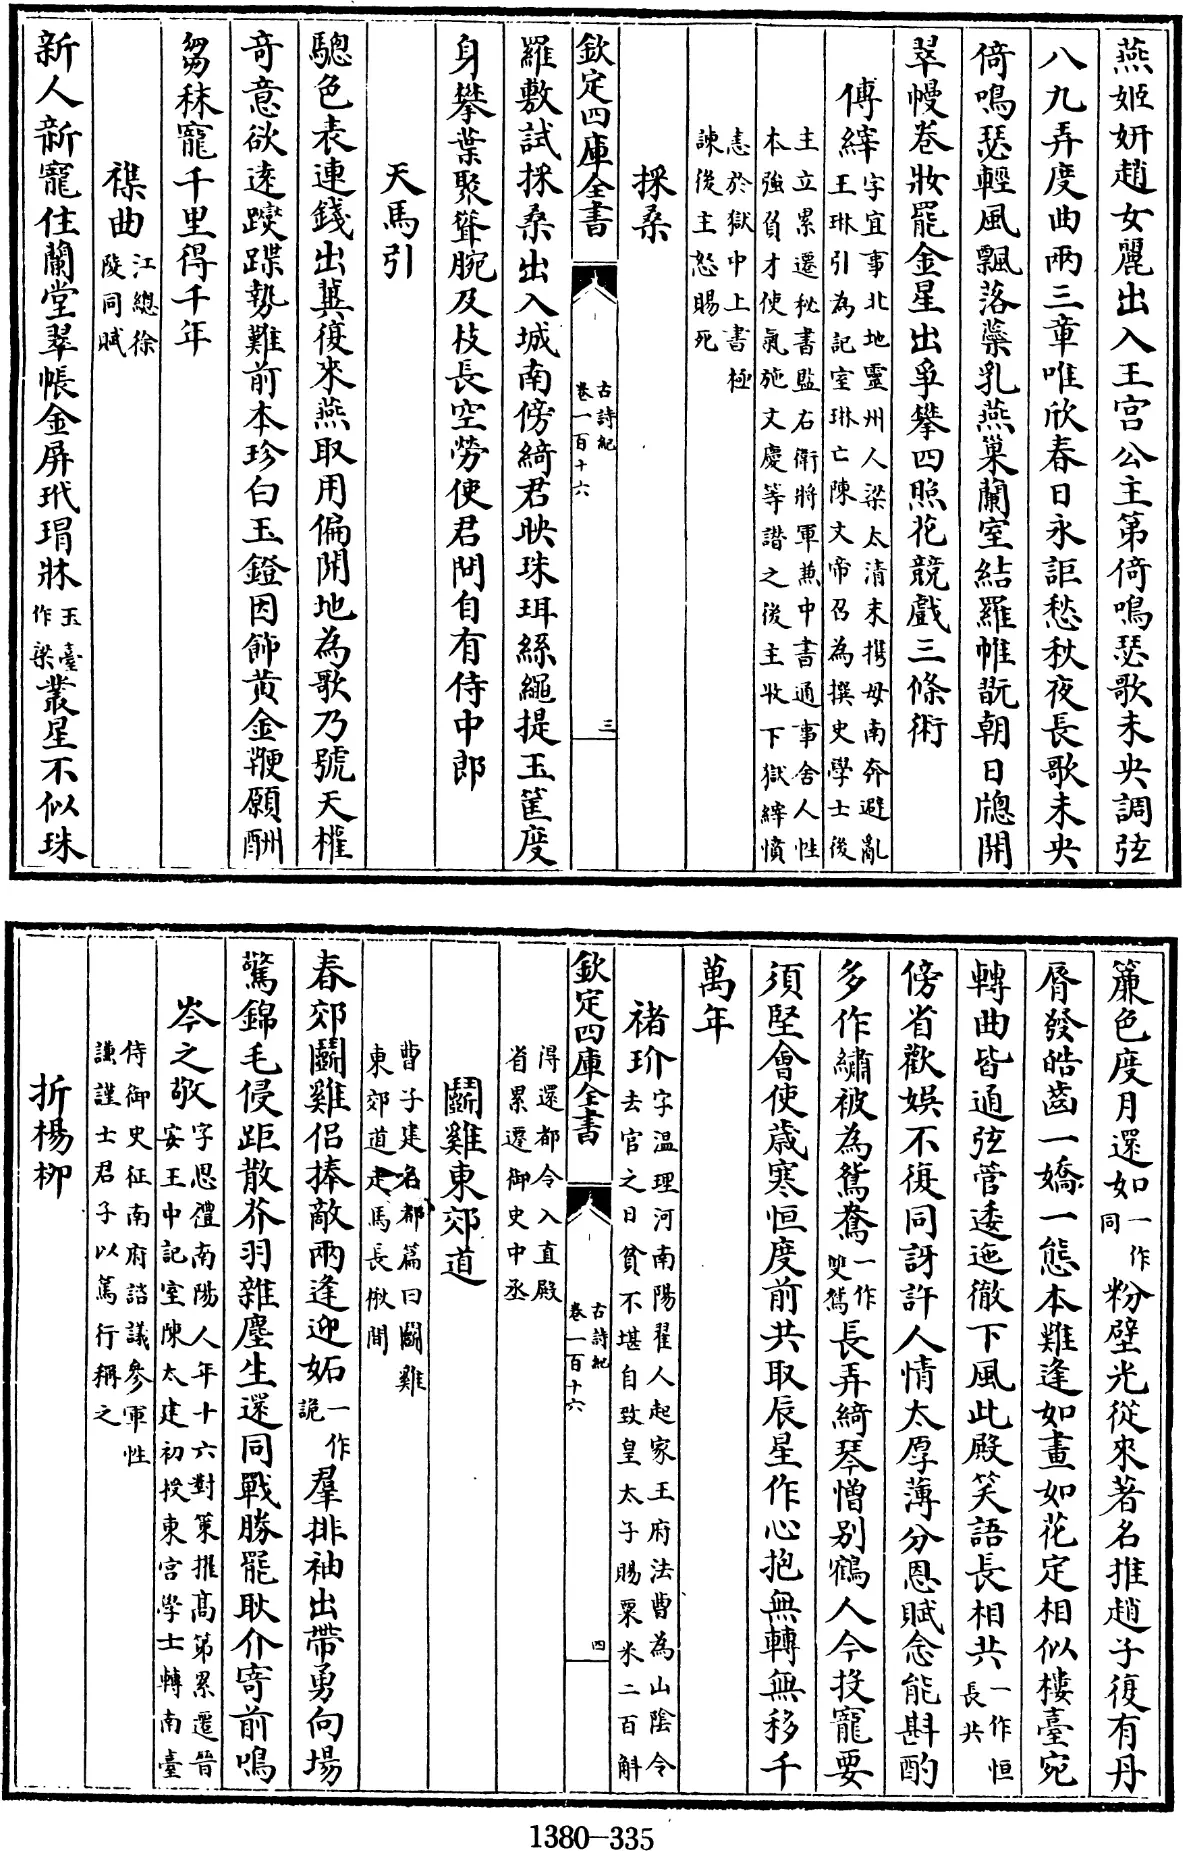 燕姬妍趙女麗出入王宫公主第倚鳴瑟歌未央調弦
八九弄度曲兩三章唯欣春日永詎愁秋夜長歌未央
倚鳴瑟輕風飄落蘂乳燕巢蘭室結羅帷翫朝日牕開
翠幔卷妝罷金星出爭攀四照花競戲三條術
傅縡字宜事北地靈州人梁太清末攜母南奔避亂
王琳引為記室琳亡陳文帝召為撰史學士後
主立累遷秘書監右衛將軍兼中書通事舍人性
本強負才使氣施文慶等譖之後主收下獄縡憤
恚於獄中上書極
諫後主怒賜死
採桑
欽定四庫全書
古詩紀
卷一百十六
三
羅敷試採桑出入城南傍綺君映珠珥絲繩提玉筐度
身攀葉聚聳腕及枝長空勞使君問自有侍中郎
天馬引
驄色表連錢出冀復來燕取用偏開地為歌乃號天權
竒意欲遠躞蹀勢難前本珍白玉鐙因飾黄金鞭願酬
芻秣寵千里得千年
襍曲江總徐
陵同賦
新人新寵住蘭堂翠帳金屏玳瑁牀玉臺
作梁叢星不似珠
簾色度月還如一作
同粉壁光從來著名推趙子復有丹
脣發皓齒一嬌一態本難逢如畫如花定相似樓臺宛
轉曲皆通弦管逶迤徹下風此殿笑語長相共一作恒
長共
傍省歡娱不復同訝許人情太厚薄分恩賦念能斟酌
多作繡被為鴛鴦一作
雙鴛長弄綺琴憎别鶴人今投寵要
須堅會使歲寒恒度前共取辰星作心抱無轉無移千
萬年
褚玠字温理河南陽翟人起家王府法曹為山陰令
去官之日貧不堪自致皇太子賜粟米二百斛
欽定四庫全書
古詩紀
卷一百十六
四
得還都令入直殿
省累遷御史中丞
鬭雞東郊道
曹子建名都篇曰鬭雞
東郊道走馬長楸間
春郊鬭雞侣捧敵兩逢迎妬一作
詭羣排袖出帶勇向場
驚錦毛侵距散芥羽雜塵生還同戰勝罷耿介寄前鳴
岑之敬字思禮南陽人年十六對策擢高第累遷晉
安王中記室陳太建初授東宫學士轉南臺
侍御史征南府諮議參軍性
謙謹士君子以篤行稱之
折楊柳
1380—335